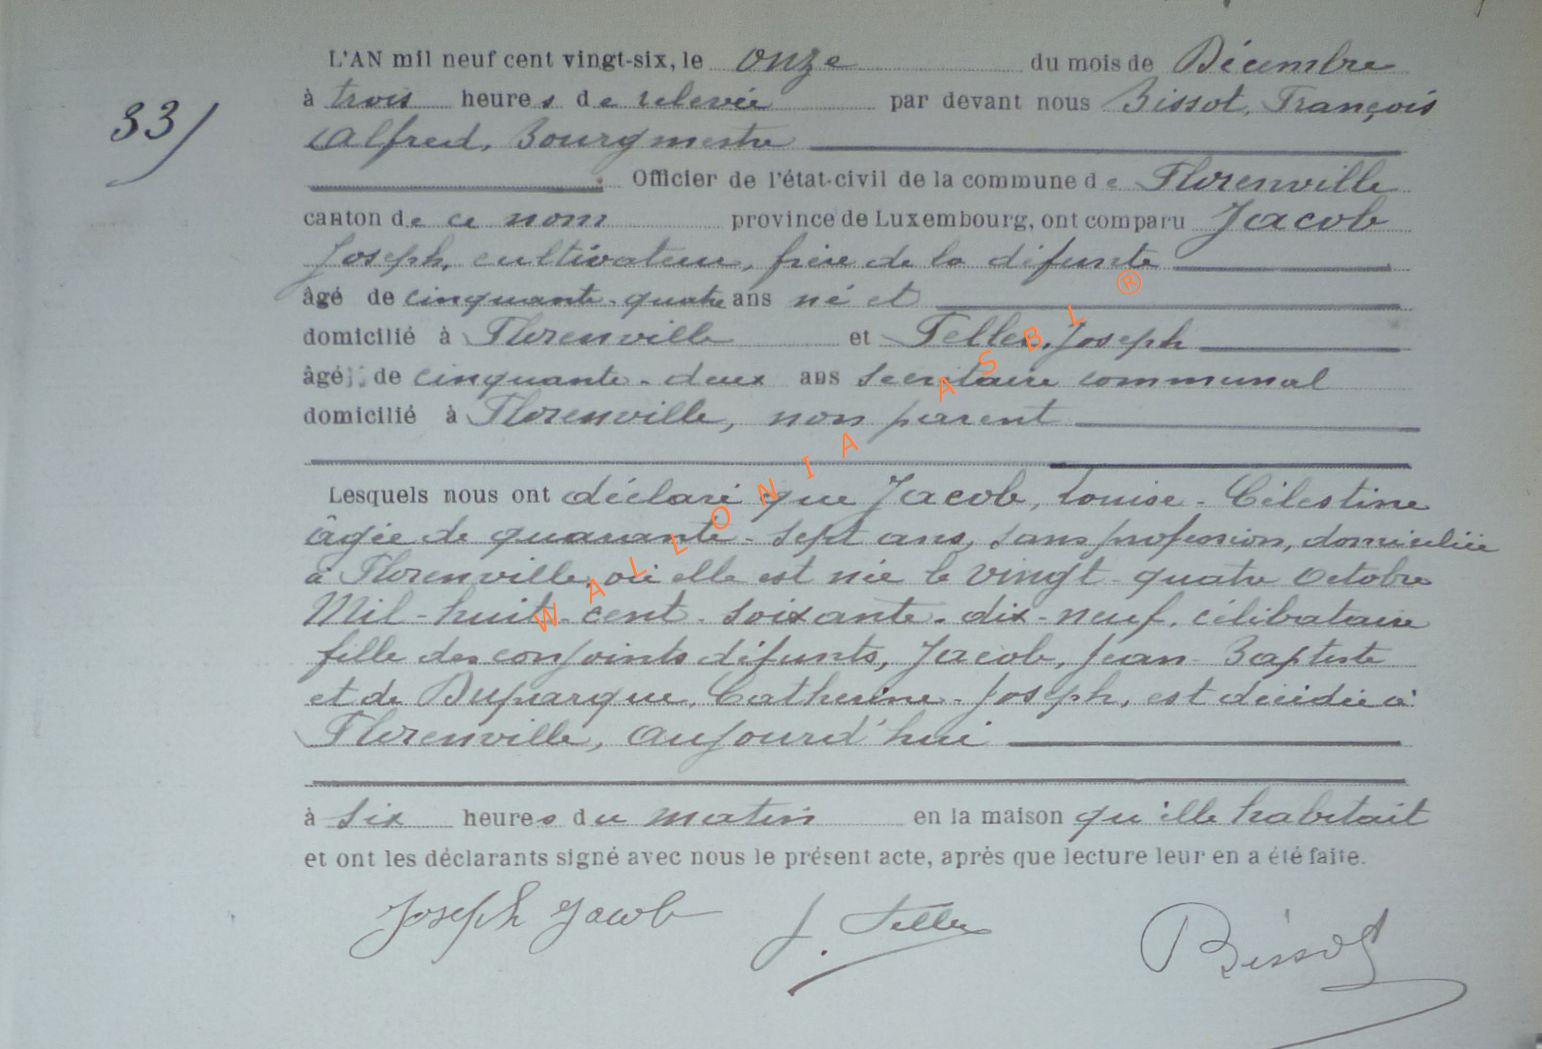 L'AN mil neuf cent vingt-six, le onze du mois de Décembre
33/
à trois heures de relevée par devant nous Bissot, François
Alfred, Bourgmestre
Officier de l'état-civil de la commune de Florenville
canton de ce nom province de Luxembourg, ont comparu Jacob
Joseph, cultivateur, frère de la défunte
âgé de cinquante-quatre ans né et
domicilié à Florenville et Feller, Joseph
âgé de cinquante-deux ans secrétaire communal
domicilié à Florenville, non parent
Lesquels nous ont déclaré que Jacob, Louise-Célestine
âgée de quarante-sept ans, sans profession, domiciliée
à Florenville, où elle est née le vingt-quatre Octobre
Mil-huit-cent-soixante-dix-neuf, célibataire
fille des conjoints défunts, Jacob, Jean-Baptiste
et de Duparque, Catherine-Joseph, est décédée à
Florenville, aujourd'hui
à six heures du matin en la maison qu'elle habitait
et ont les déclarants signé avec nous le présent acte, après que lecture leur en a été faite.
Joseph Jacob J. Feller Bissot
WALLONIA ASBL ®